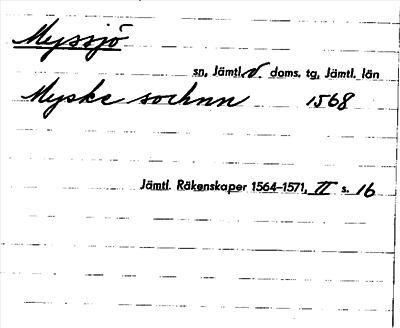 Myssjö
sn, Jämtl. V. doms. tg, Jämtl. län
Myske sochnn 1568
Jämtl. Räkenskaper 1564–1571, II s. 16